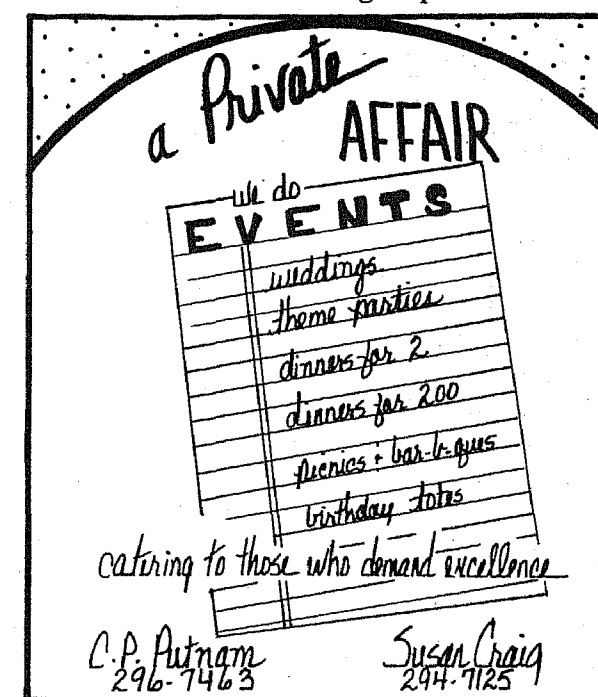 a Private
AFFAIR
we do
EVENTS
weddings
theme parties
dinners for 2
dinners for 200
picnics + bar-b-ques
birthday totes
catering to those who demand excellence
C.P. Putnam Susan Craig
296-7463 294-7125